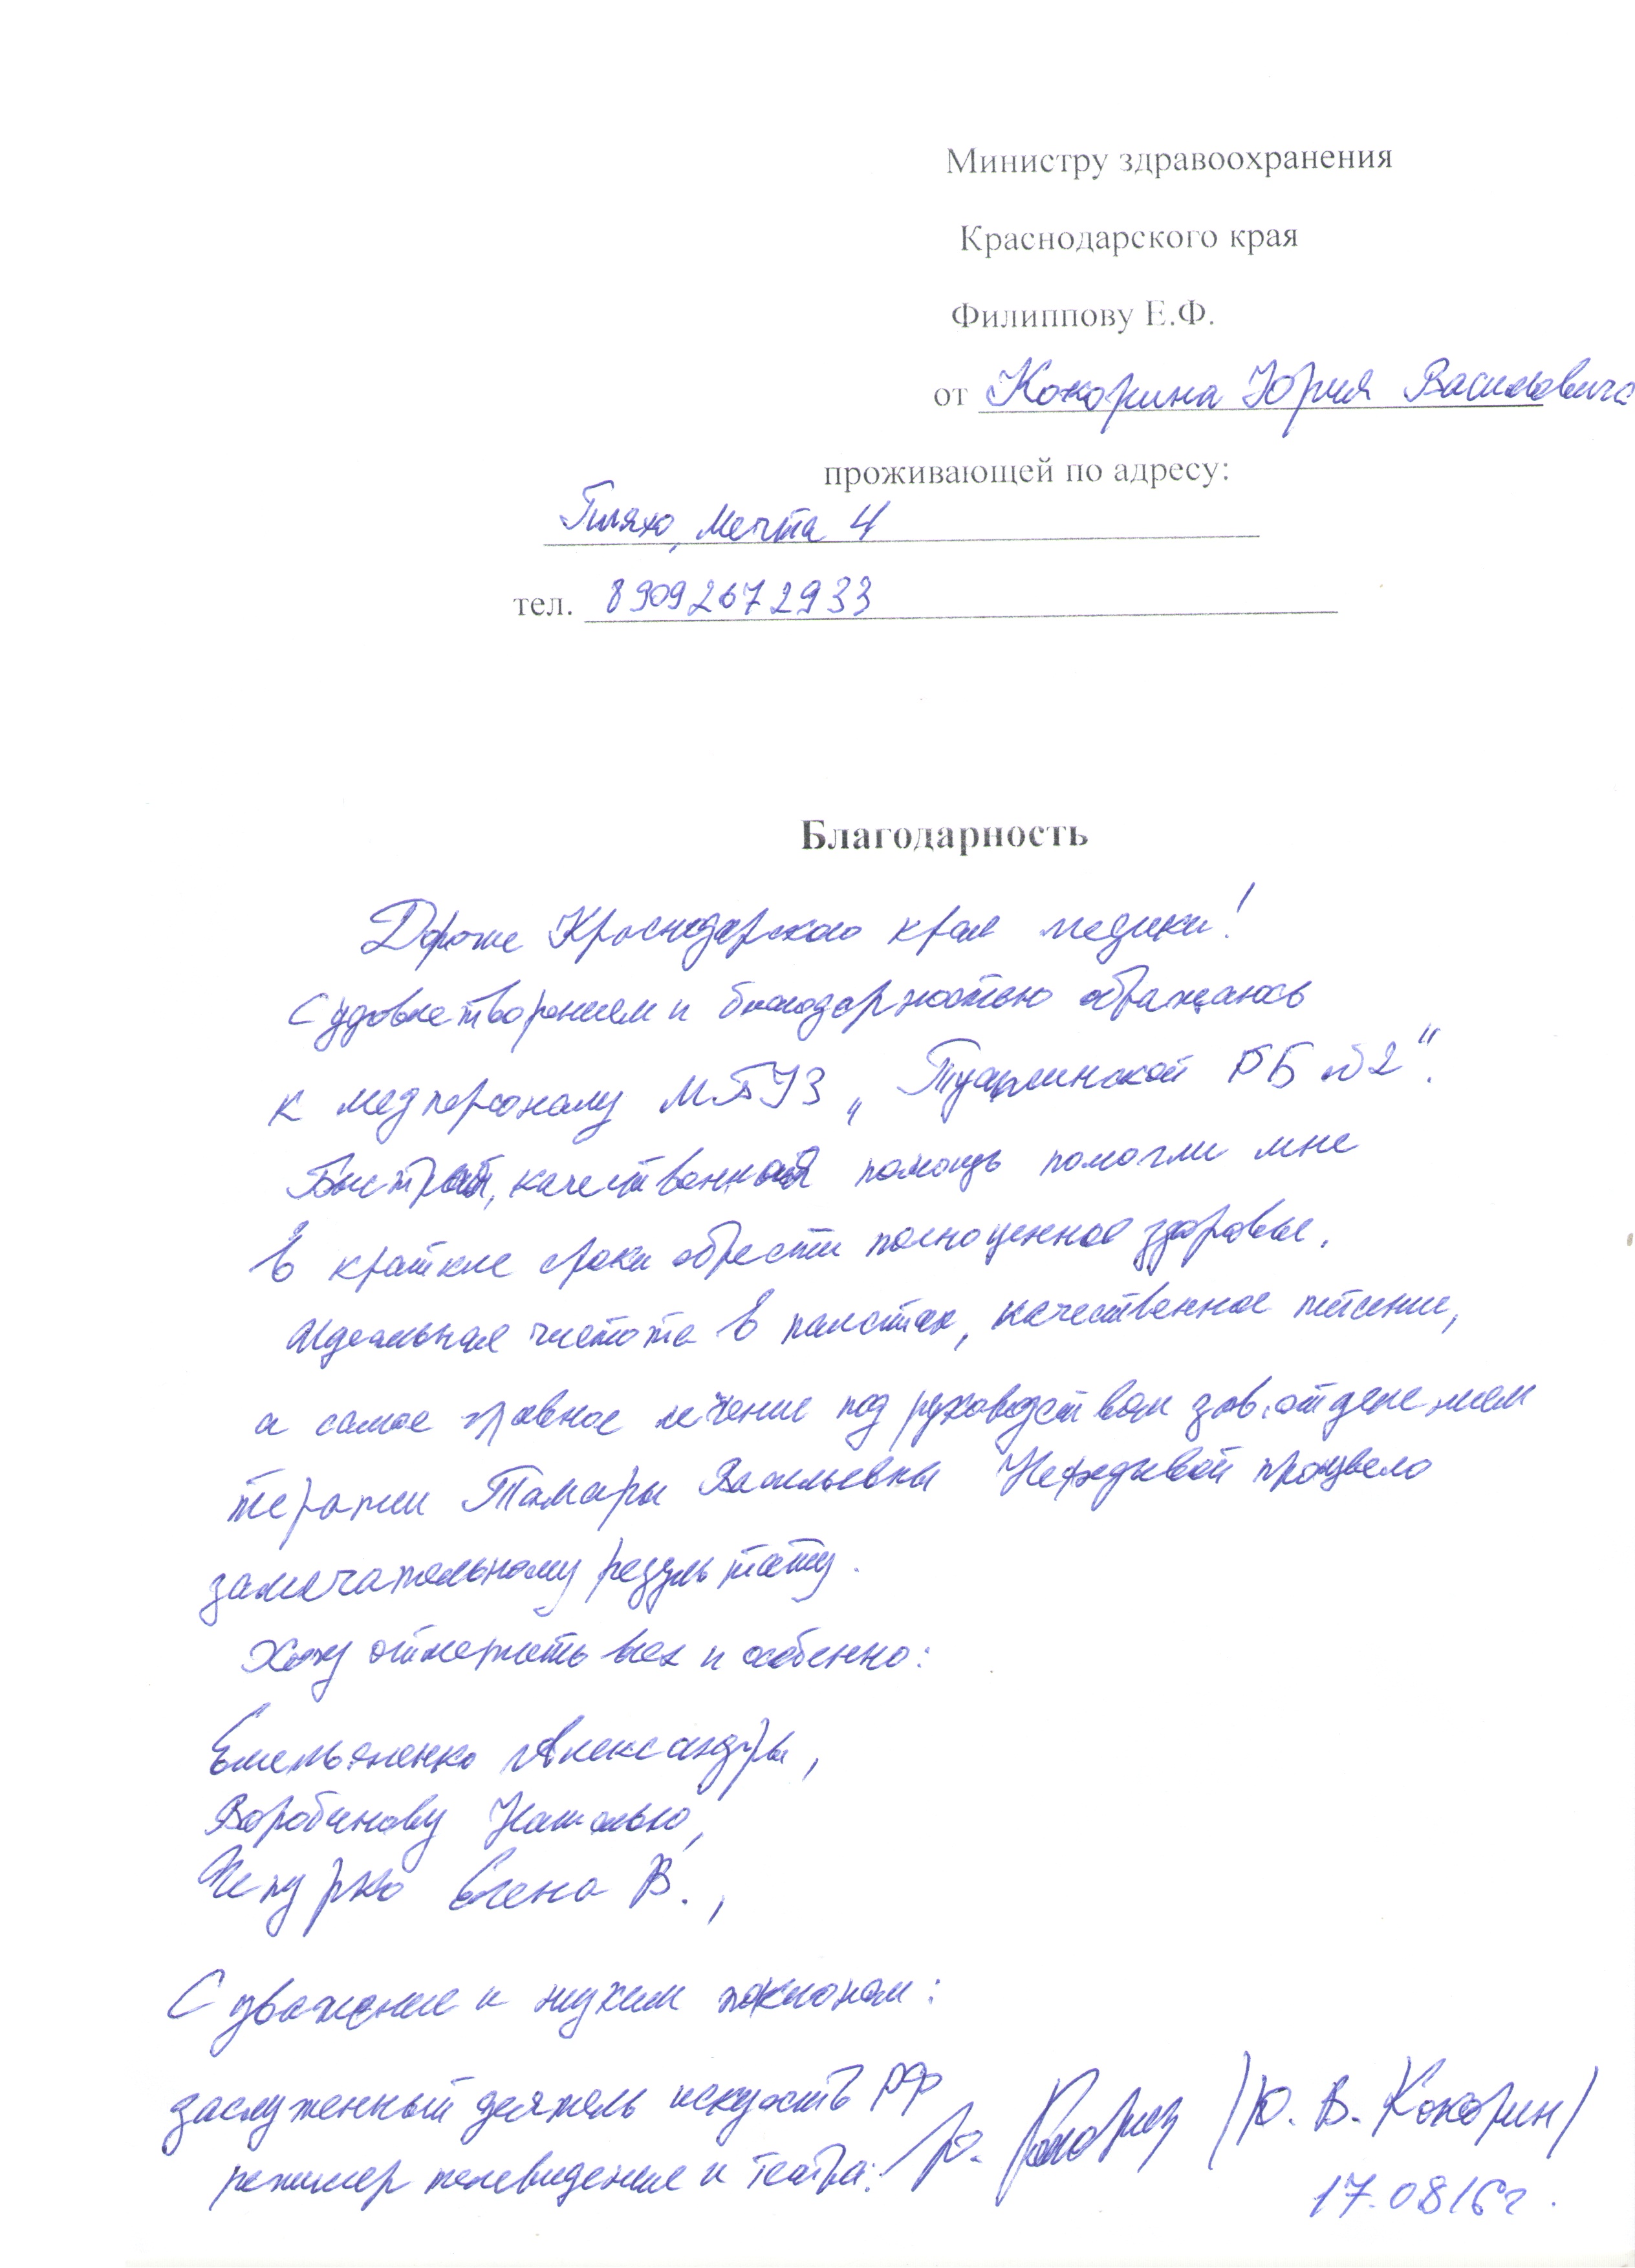 Министру здравоохранения
Краснодарского края
Филиппову Е.Ф.
от Кокорина Юрия Васильевича
проживающей по адресу:
Пляхо, Мечта 4
тел. 89092672933
Благодарность
Дорогие Краснодарского края медики!
С удовлетворением и благодарностью обращаюсь
к медперсоналу МБУЗ „Туапсинской РБ №2".
Быстрая, качественная помощь помогли мне
в краткие сроки обрести полноценное здоровье.
Идеальная чистота в палатах, качественное питание,
а самое главное лечение под руководством зав. отделением
терапии Тамары Васильевны произвело
замечательному результату.
Хочу отметить всех и особенно:
Емельяненко Александры,
Наталью,
Чепурко Елена В.,
С уважение и низким поклоном:
заслуженный деятель искусств РФ
режиссер телевидение и театра: Ю. Кокорин /Ю. В. Кокорин/
17.08 16г.